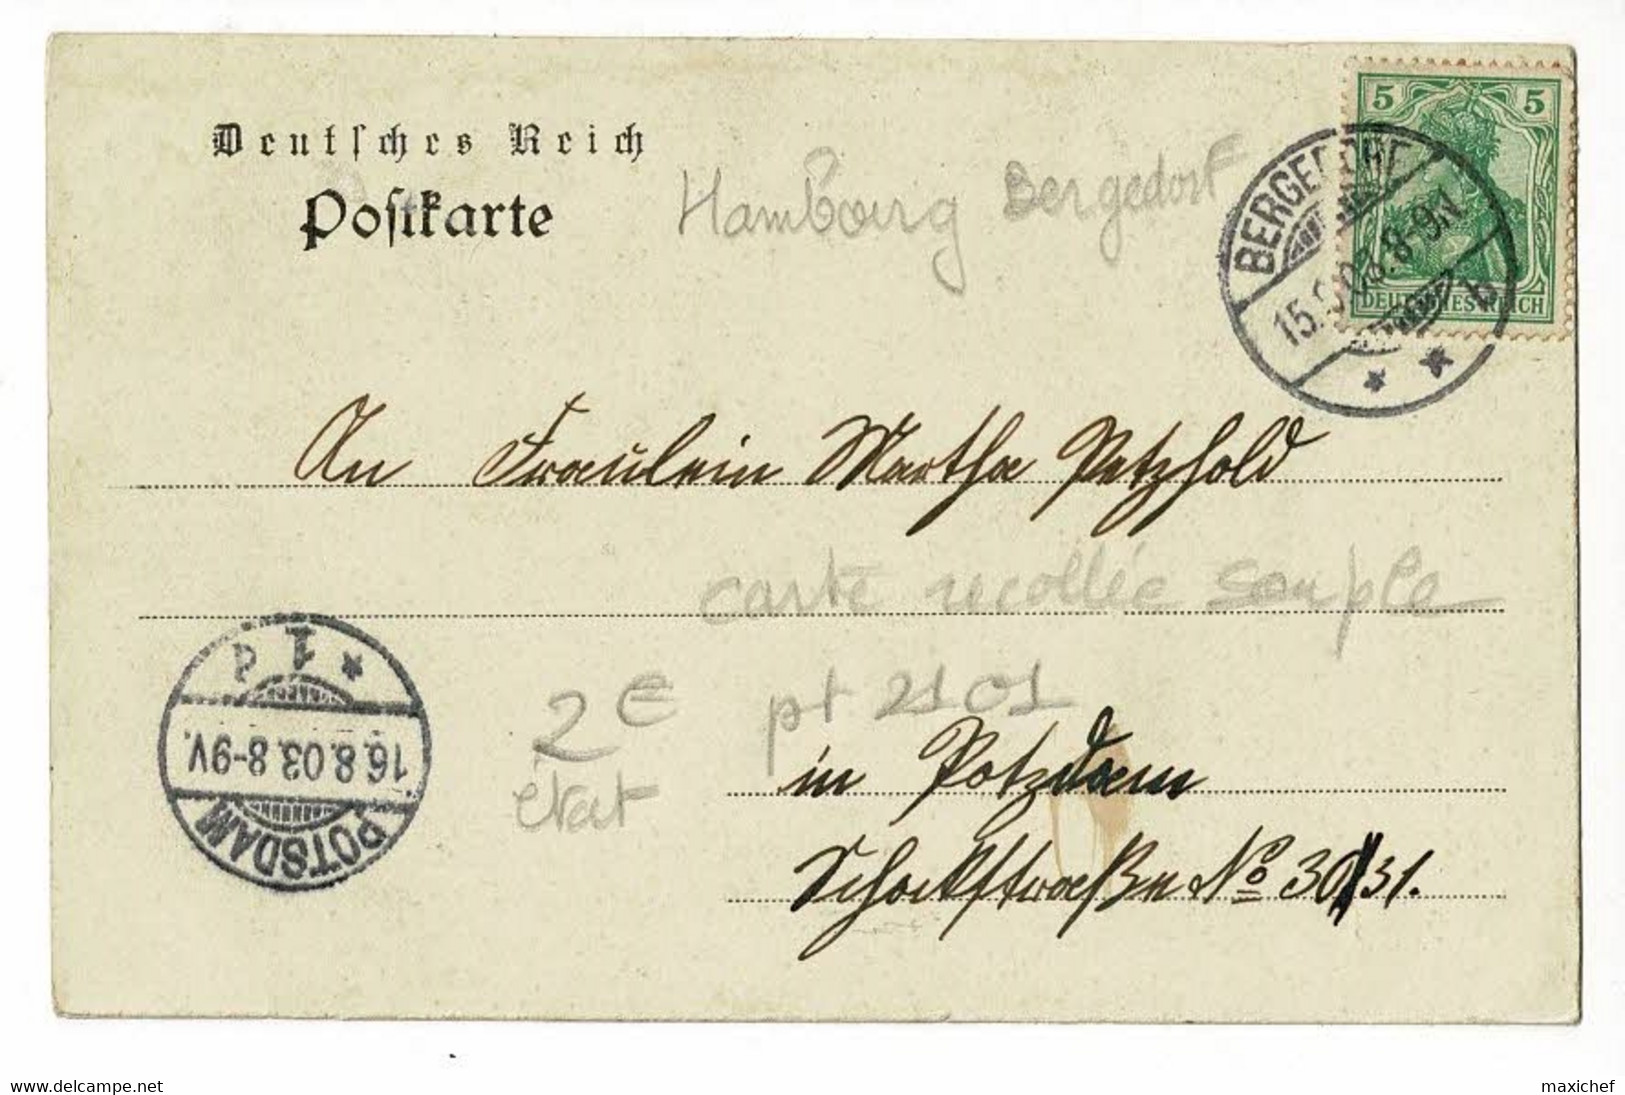 Deutsches Reich
Postkarte
Hambourg Bergedorf
5 5
DEUTSCHES REICH
BERGEDORF
15.8.03.8-9N
b
* *
An Fraeulein Martha Petzhold
carte recollée souple
* 1 d
16.8.03.8-9V.
POTSDAM
2€ pt 2101
état
in Potzdam
No 30/31.
www.delcampe.net
maxichef